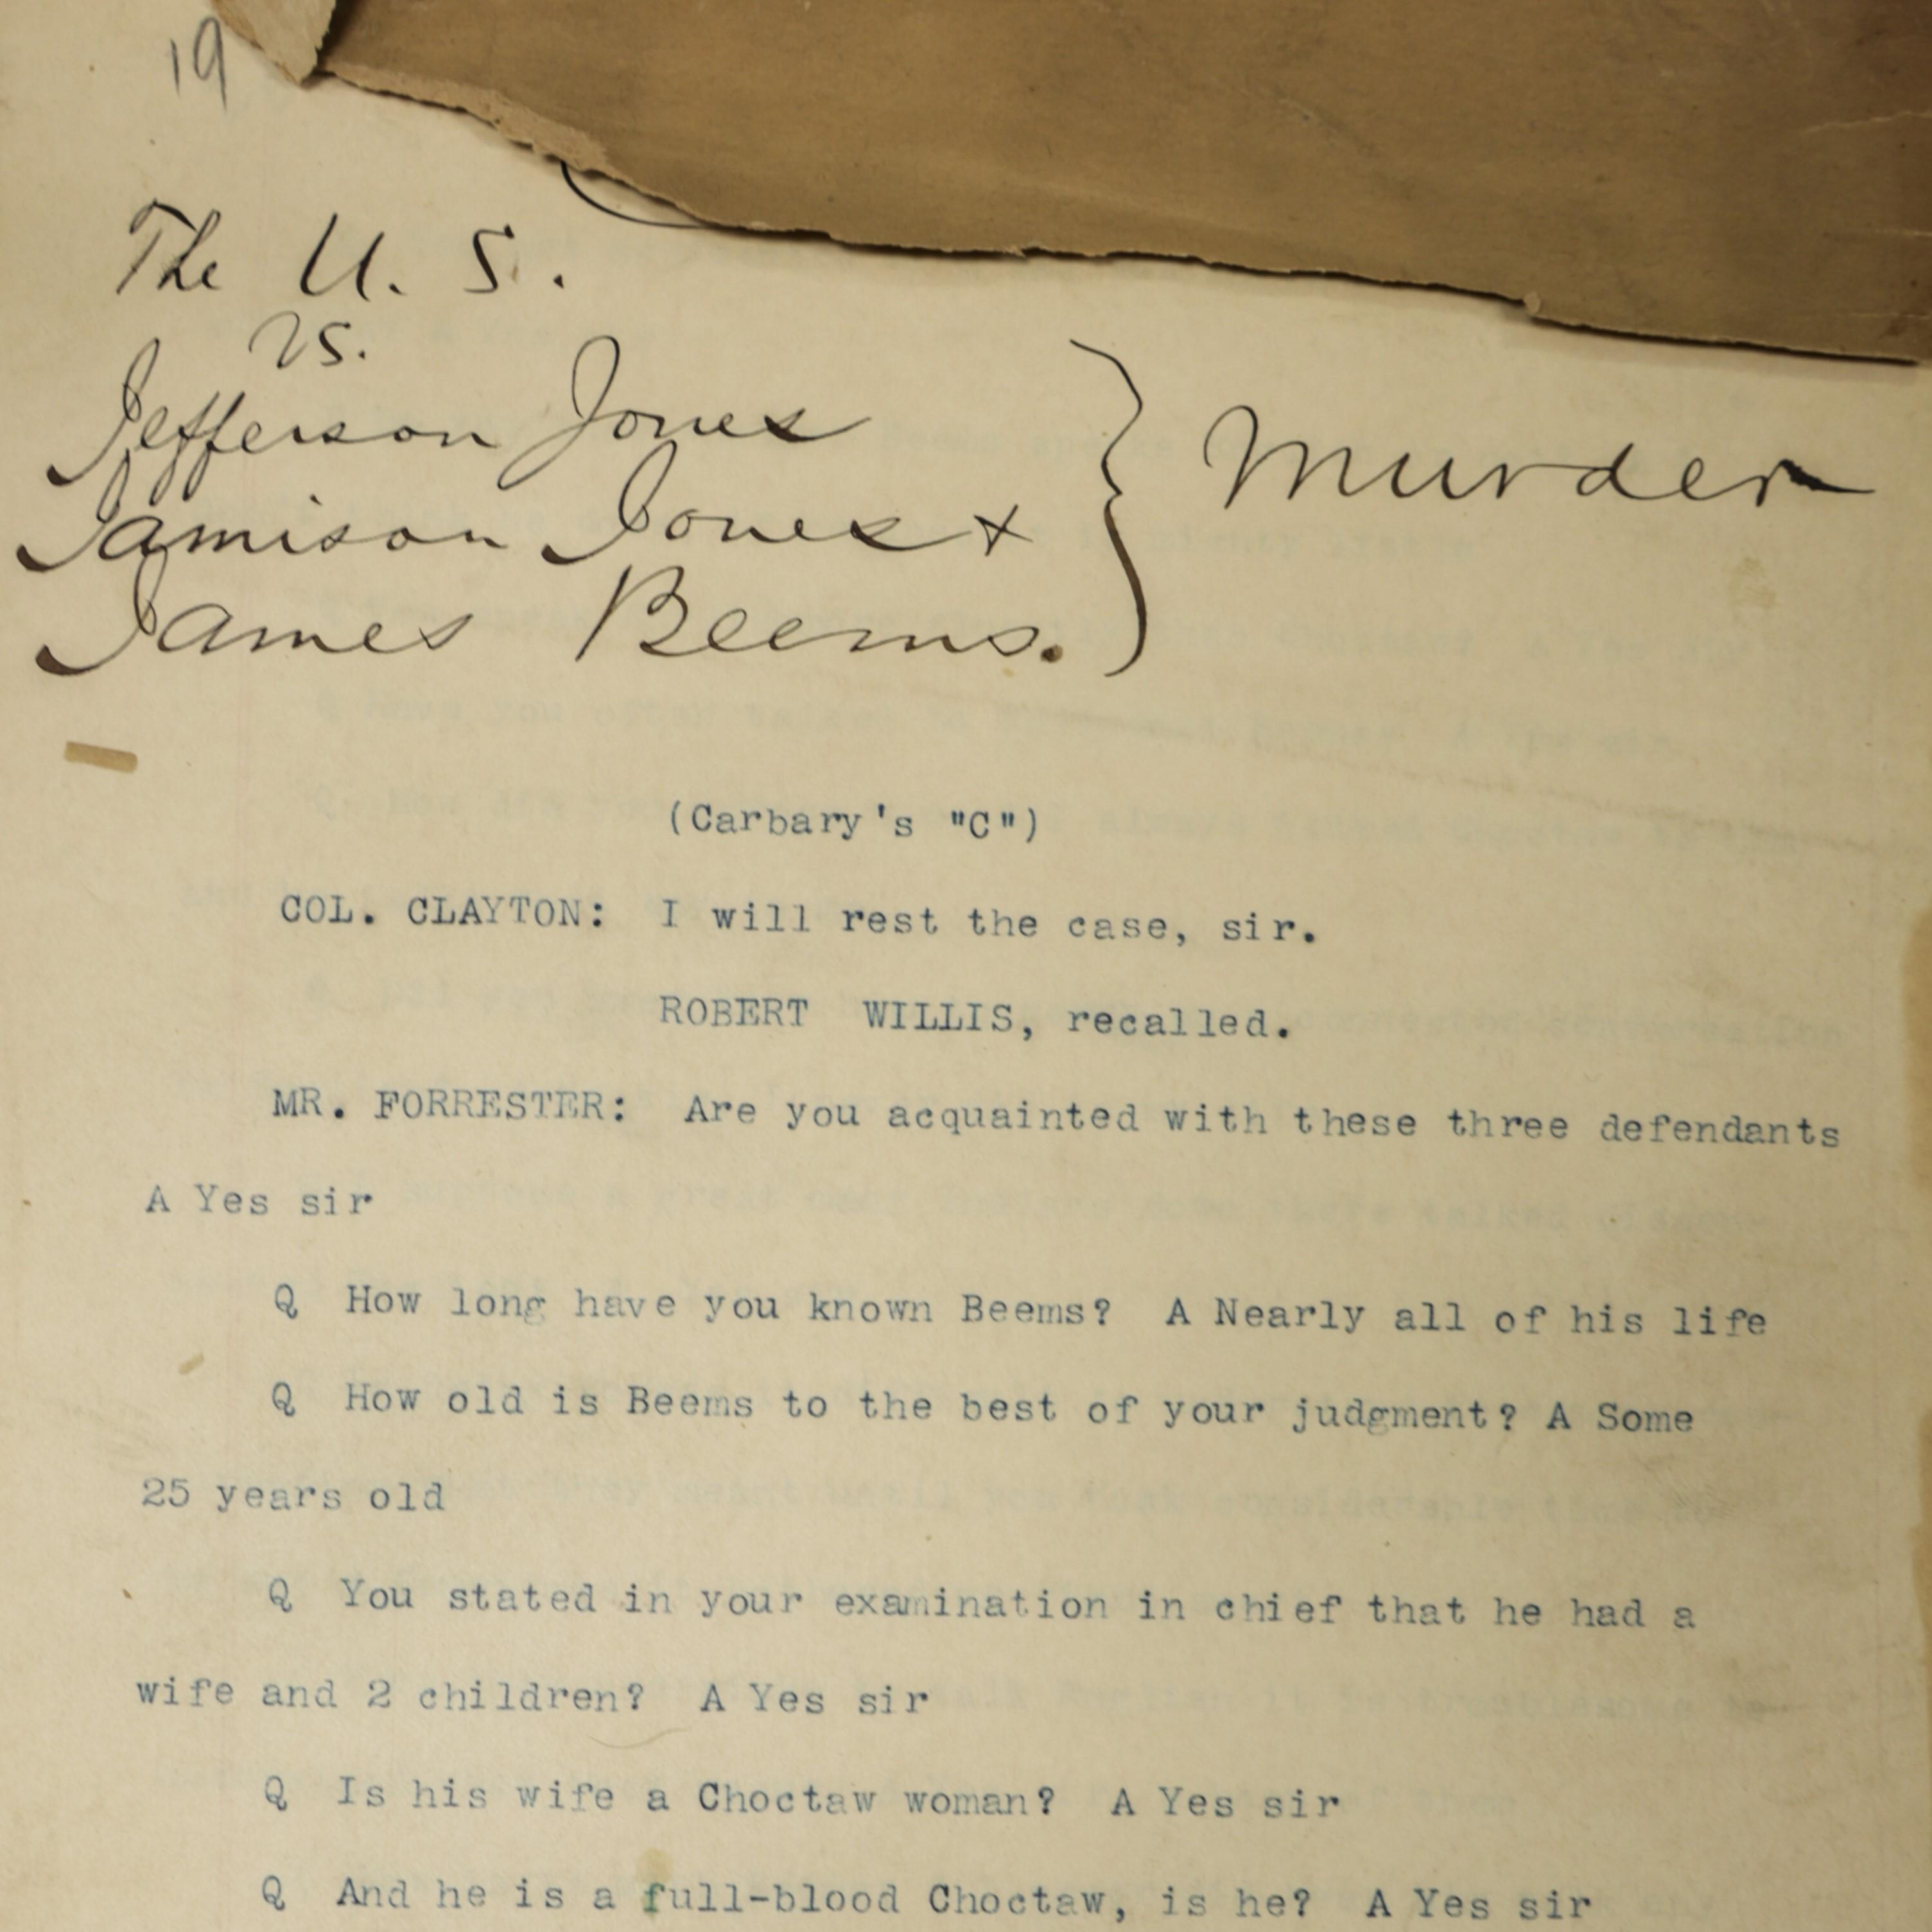 19
The U. S.
vs.
Jefferson Jones
Jamison Jones +
James Beems.
Murder
(Carbary's "C")
COL. CLAYTON: I will rest the case, sir.
ROBERT WILLIS, recalled.
MR. FORRESTER: Are you acquainted with these three defendants
A Yes sir
Q How long have you known Beems? A Nearly all of his life
Q How old is Beems to the best of your judgment? A Some
25 years old
Q You stated in your examination in chief that he had a
wife and 2 children? A Yes sir
Q Is his wife a Choctaw woman? A Yes sir
Q And he is a full-blood Choctaw, is he? A Yes sir